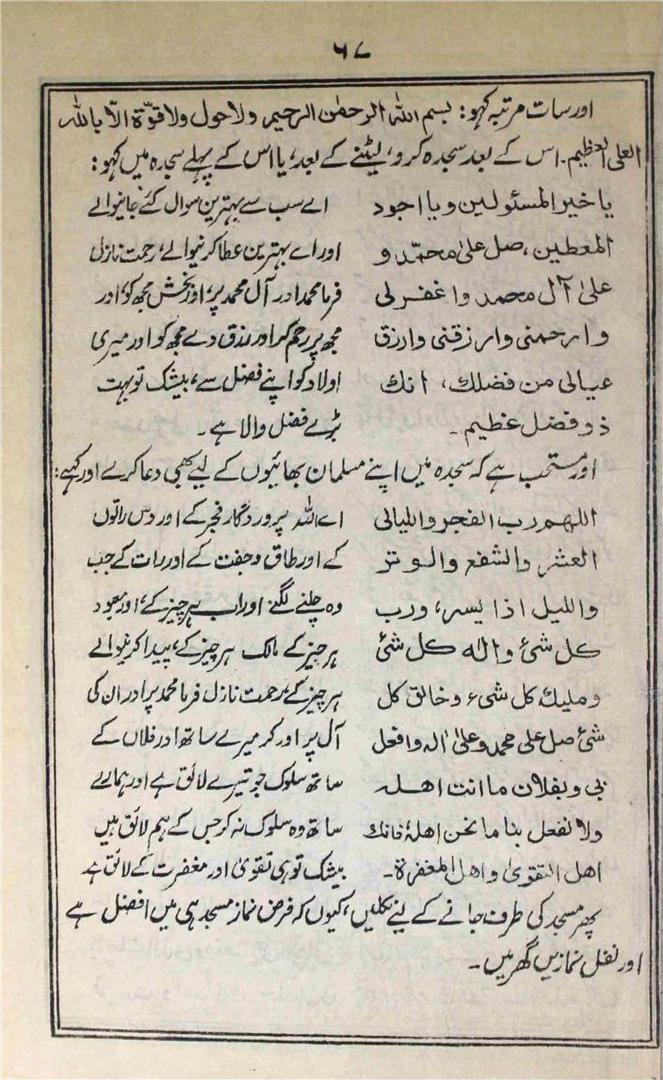 ۶۷
اور سات مرتبہ کہو: بسم اللہ الرحمٰن الرحیم ولا حول ولا قوّۃ الّا باللہ
العلی العظیم۔ اس کے بعد سجدہ کرو، لیٹنے کے بعد، یا اس کے پہلے سجدہ میں کہو:
یا خیر المسئولین ویا اجود اے سب سے بہترین سوال کئے جانیوالے
المعطین، صل علیٰ محمّد و اور اے بہترین عطا کرنیوالے، رحمت نازل
علیٰ آل محمد واغفرلی فرما محمد اور آل محمد پر، اور بخش مجھ کو، اور
وارحمنی وارزقنی وارزق مجھ پر رحم کر اور رزق دے مجھ کو اور میری
عیالی من فضلك، انك اولاد کو اپنے فضل سے، بیشک تو بہت
ذو فضل عظیم۔ بڑے فضل والا ہے۔
اور مستحب ہے کہ سجدہ میں اپنے مسلمان بھائیوں کے لیے بھی دعا کرے اور کہے:
اللہم رب الفجر واللیالی اے اللہ پروردگار فجر کے اور دس راتوں
العشر والشفع والوتر کے اور طاق و جفت کے اور رات کے جب
واللیل اذا یسر، ورب وہ چلنے لگے اور اب ہر چیز کے، اور معبود
کل شئ والٰہ کل شئ ہر چیز کے مالک ہر چیز کے، پیدا کرنیوالے
وملیك کل شیء وخالق کل ہر چیز کے، رحمت نازل فرما محمد پر اور ان کی
شئ صل علی محمد وعلیٰ اٰلہ وافعل آل پر اور کر میرے ساتھ اور فلاں کے
بی وبفلان ما انت اھلہ ساتھ سلوک جو تیرے لائق ہے اور ہمارے
ولا تفعل بنا ما نحن اھلہٗ فانك ساتھ وہ سلوک نہ کر جس کے ہم لائق ہیں
اھل التقویٰ واھل المغفرۃ۔ بیشک تو ہی تقویٰ اور مغفرت کے لائق ہے
پھر مسجد کی طرف جانے کے لیئے نکلیں، کیوں کہ فرض نماز مسجد ہی میں افضل ہے
اور نفل نمازیں گھر میں۔